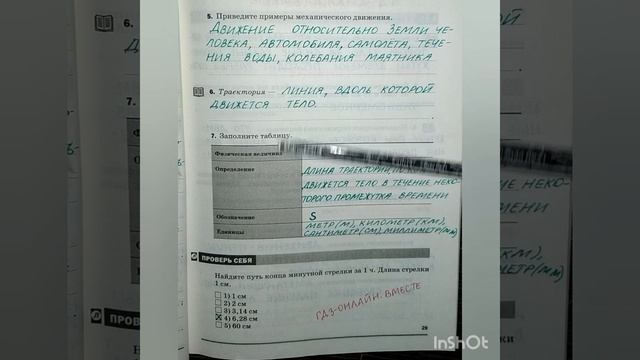 5. Приведите примеры механического движения.
ДВИЖЕНИЕ ОТНОСИТЕЛЬНО ЗЕМЛИ ЧЕ-
ЛОВЕКА, АВТОМОБИЛЯ, САМОЛЕТА, ТЕЧЕ-
НИЯ ВОДЫ, КОЛЕБАНИЯ МАЯТНИКА
6. Траектория — ЛИНИЯ, ВДОЛЬ КОТОРОЙ
ДВИЖЕТСЯ ТЕЛО.
7. Заполните таблицу.
Физическая величина
Определение
ДЛИНА ТРАЕКТОРИИ,
ДВИЖЕТСЯ ТЕЛО В ТЕЧЕНИЕ НЕКО-
ТОРОГО ПРОМЕЖУТКА ВРЕМЕНИ
Обозначение
S
Единицы
МЕТР(М), КИЛОМЕТР(КМ),
САНТИМЕТР(СМ), МИЛЛИМЕТР(ММ)
ПРОВЕРЬ СЕБЯ
Найдите путь конца минутной стрелки за 1 ч. Длина стрелки
1 см.
1) 1 см
2) 2 см
3) 3,14 см
4) 6,28 см
5) 60 см
ГДЗ-ОНЛАЙН. ВМЕСТЕ
29
InShOt
6.
7.